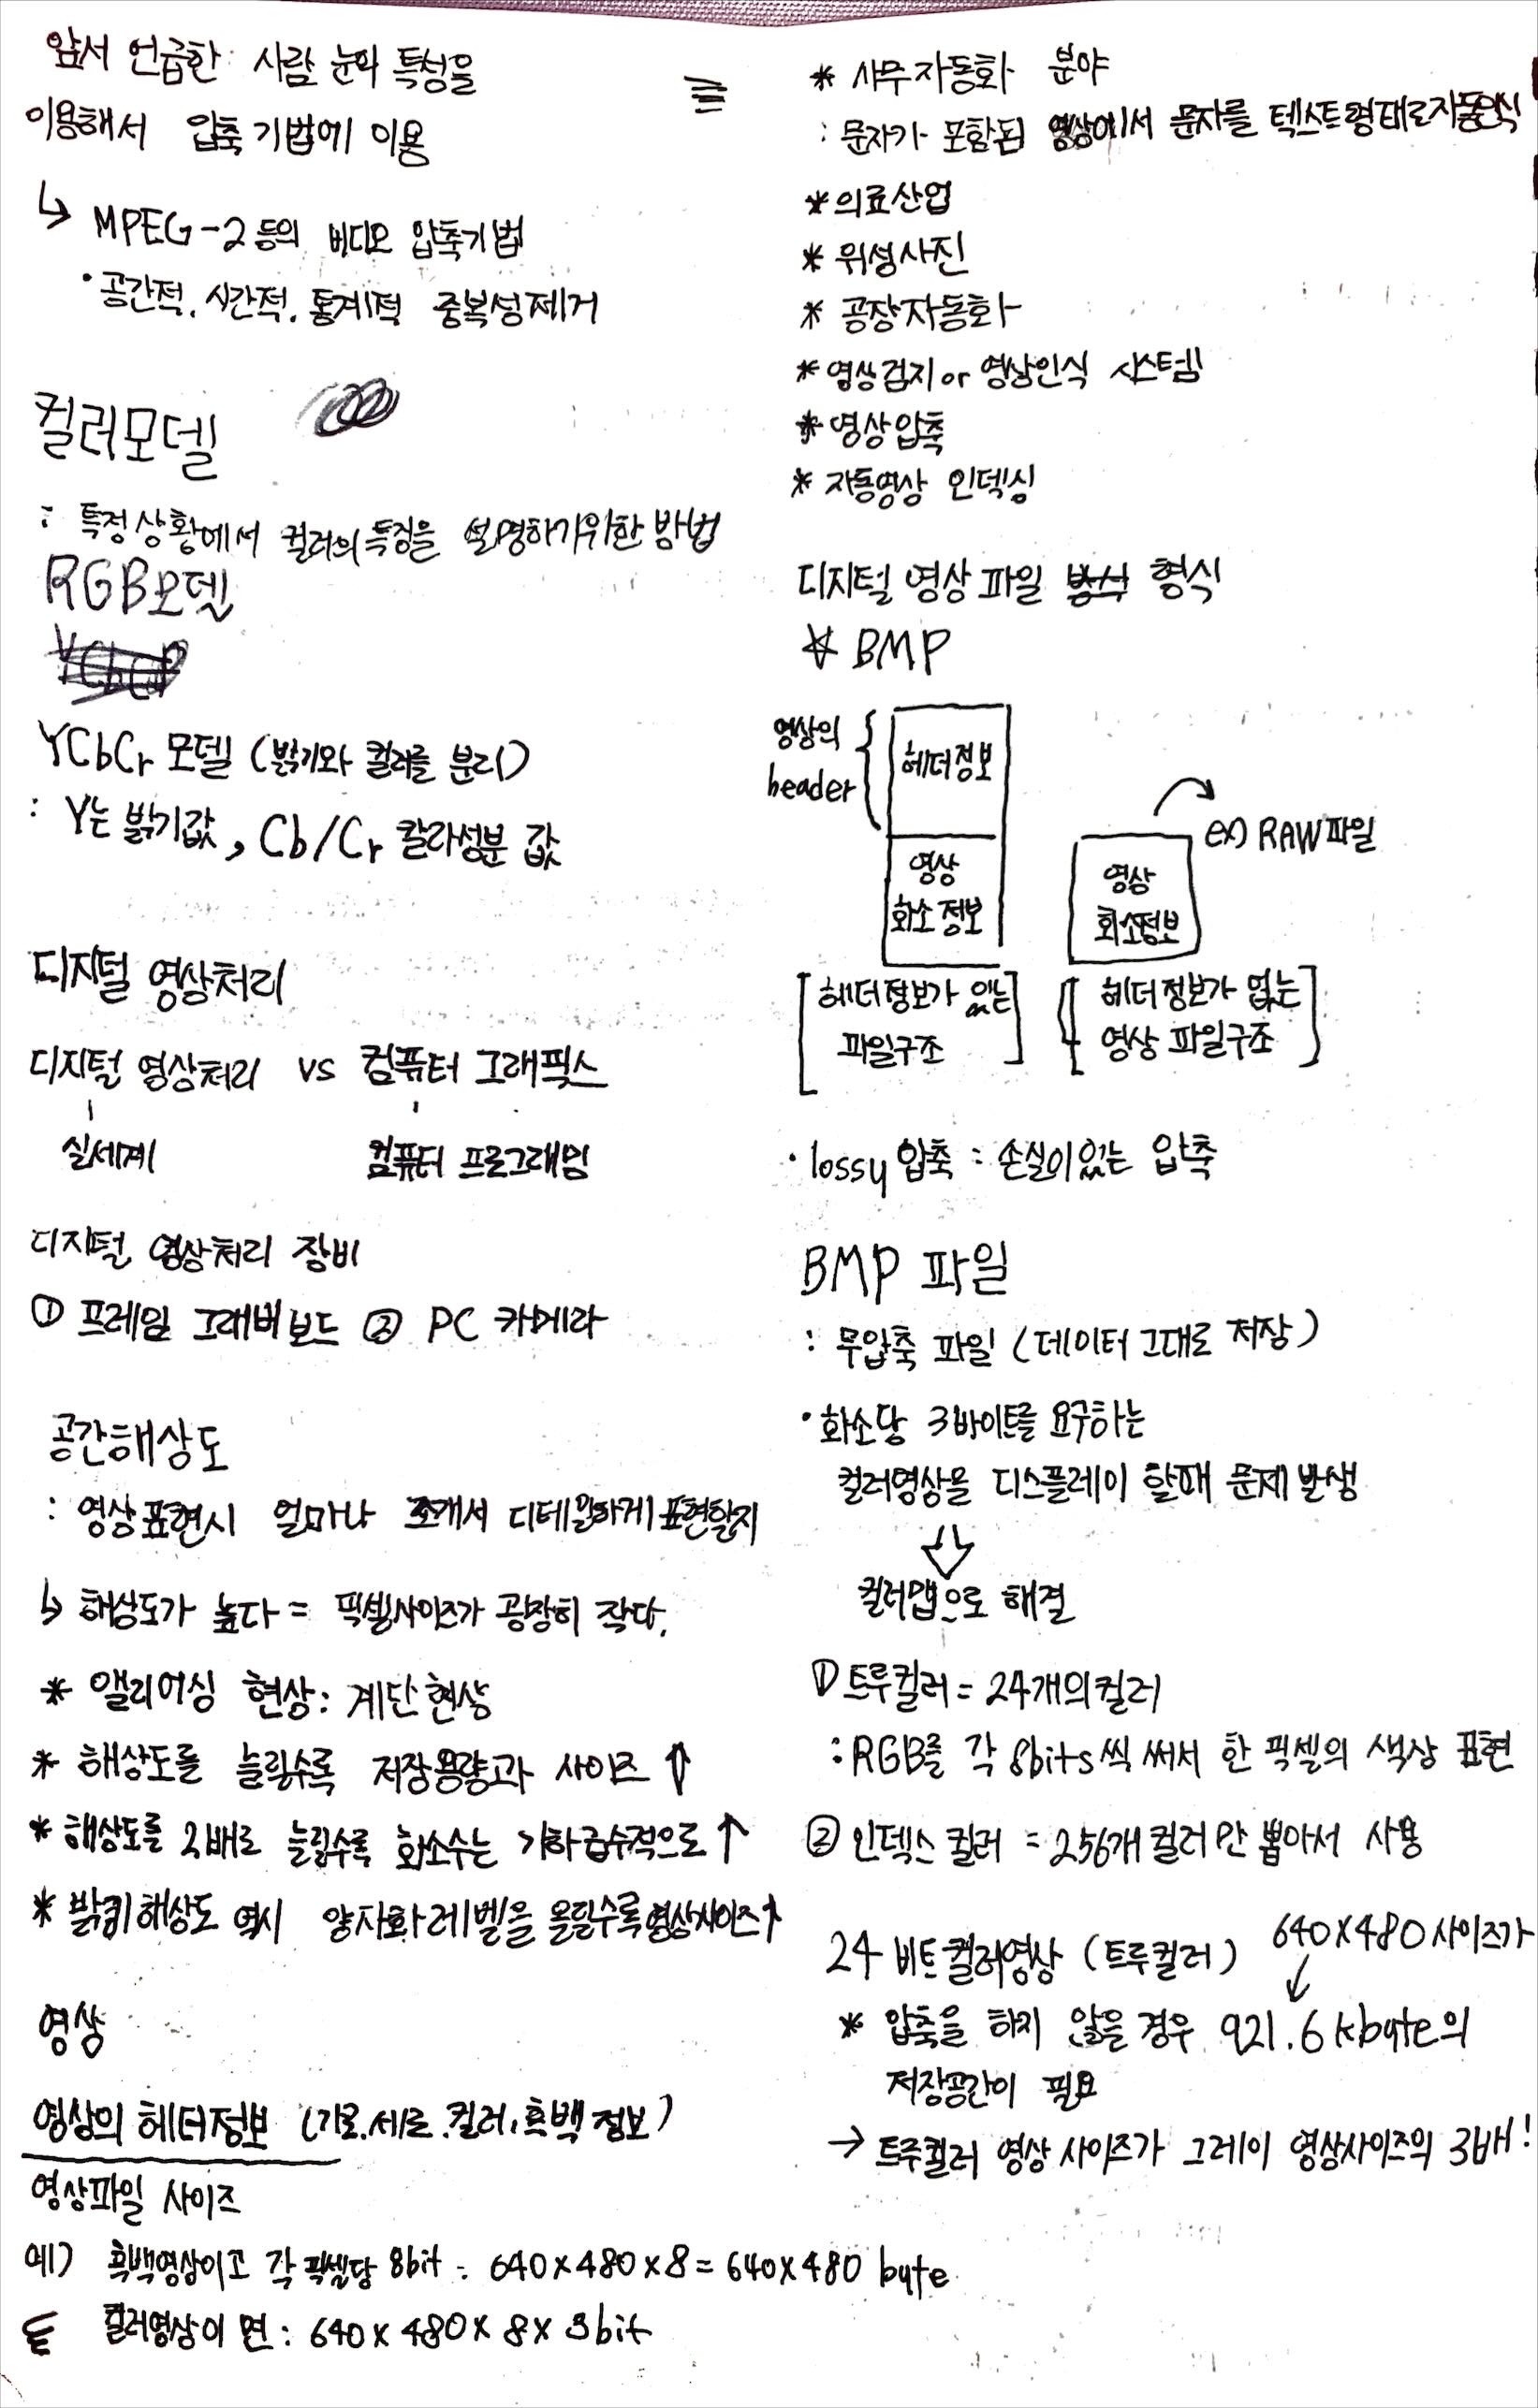 앞서 언급한 사람 눈의 특성을
이용해서 압축기법에 이용
↳ MPEG-2 등의 비디오 압축기법
· 공간적, 시간적, 통계적 중복성제거
컬러모델
: 특정상황에서 컬러의 특징을 설명하기위한 방법
RGB모델
YCbCr 모델 (밝기와 컬러를 분리)
: Y는 밝기값, Cb/Cr 칼라성분 값
디지털 영상처리
디지털 영상처리 vs 컴퓨터 그래픽스
실세계 컴퓨터 프로그래밍
디지털 영상처리 장비
① 프레임 그래버 보드 ② PC 카메라
공간해상도
: 영상표현시 얼마나 쪼개서 디테일하게 표현할지
↳ 해상도가 높다 = 픽셀사이즈가 굉장히 작다.
* 앨리어싱 현상: 계단현상
* 해상도를 늘릴수록 저장용량과 사이즈 ↑
* 해상도를 2배로 늘릴수록 화소수는 기하급수적으로 ↑
* 밝기해상도 역시 양자화레벨을 올릴수록 영상사이즈↑
영상
영상의 헤더정보 (가로.세로.컬러,흑백 정보)
영상파일 사이즈
예) 흑백영상이고 각 픽셀당 8bit : 640×480×8 = 640×480 byte
컬러영상이면 : 640×480×8×3bit
* 사무자동화 분야
: 문자가 포함된 영상에서 문자를 텍스트형태로자동인식
* 의료산업
* 위성사진
* 공장자동화
* 영상검지 or 영상인식 시스템
* 영상압축
* 자동영상 인덱싱
디지털 영상파일 방식 형식
* BMP
영상의
header
헤더정보
영상
화소정보
ex) RAW파일
영상
화소정보
[헤더정보가 있는
파일구조]
[헤더정보가 없는
영상 파일구조]
· lossy 압축 : 손실이있는 압축
BMP 파일
: 무압축 파일 (데이터 그대로 저장)
· 화소당 3바이트를 요구하는
컬러영상을 디스플레이 할때 문제발생
⇓
컬러맵으로 해결
① 트루컬러 = 24개의컬러
: RGB를 각 8bits씩 써서 한 픽셀의 색상 표현
② 인덱스 컬러 = 256개 컬러만 뽑아서 사용
24 비트컬러영상 (트루컬러) 640×480 사이즈가
* 압축을 하지 않을 경우 921.6 kbyte의
저장공간이 필요
→ 트루컬러 영상 사이즈가 그레이 영상사이즈의 3배!